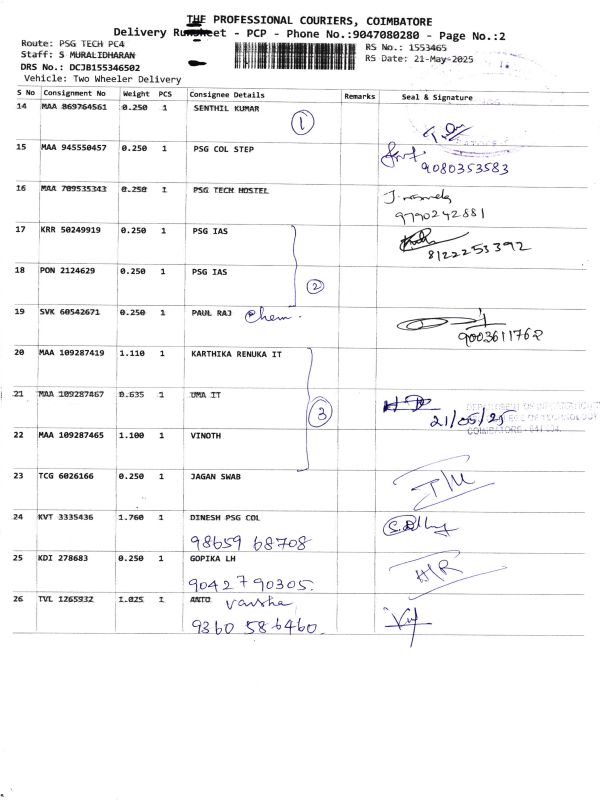 THE PROFESSIONAL COURIERS, COIMBATORE
Delivery Runsheet - PCP - Phone No.:9047080280 - Page No.:2
Route: PSG TECH PC4
RS No.: 1553465
Staff: S MURALIDHARAN
RS Date: 21-May-2025
DRS No.: DCJB155346502
Vehicle: Two Wheeler Delivery
S No Consignment No Weight PCS Consignee Details Remarks Seal & Signature
14 MAA 869764561 0.250 1 SENTHIL KUMAR
1
15 MAA 945550457 0.250 1 PSG COL STEP
9080353583
16 MAA 709535343 0.250 1 PSG TECH HOSTEL
9790242881
17 KRR 50249919 0.250 1 PSG IAS
8122253392
18 PON 2124629 0.250 1 PSG IAS
2
19 SVK 60542671 0.250 1 PAUL RAJ Chem.
9003611762
20 MAA 109287419 1.110 1 KARTHIKA RENUKA IT
21 MAA 109287467 0.635 1 UMA IT
3
21/05/25
22 MAA 109287465 1.100 1 VINOTH
23 TCG 6026166 0.250 1 JAGAN SWAB
24 KVT 3335436 1.760 1 DINESH PSG COL
98659 68708
25 KDI 278683 0.250 1 GOPIKA LH
H/R
90427 90305.
26 TVL 1265932 1.025 1 ANTO Varsha
9360 586460.